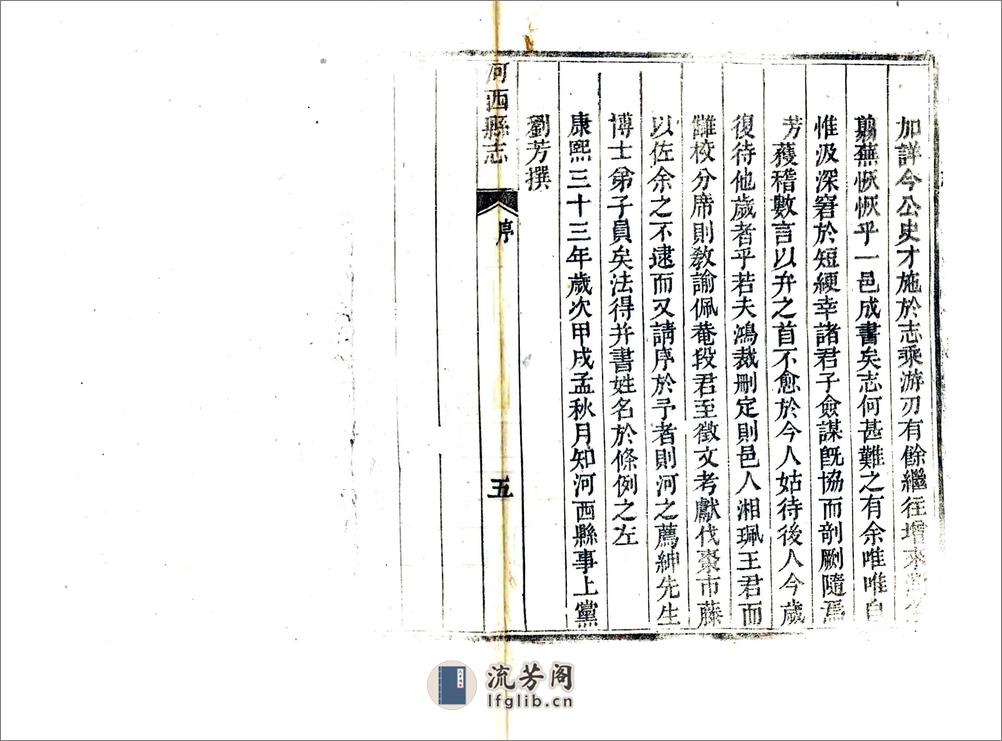 加詳今公史才施於志乘游刃有餘繼往增來
蕪恢恢乎一邑成書矣志何甚難之有余唯唯自
惟汲深窘於短綆幸諸君子僉謀既協而剞劂隨焉
芳蕪稽數言以弁之首不愈於今人姑待後人今歲
復待他歲者乎若夫鴻裁刪定則邑人湘珮王君而
讎校分席則敎諭佩菴段君至徵文考獻伐棗市藤
以佐余之不逮而又請序於予者則河之薦紳先生
博士弟子員矣法得并書姓名於條例之左
康熙三十三年歲次甲戌孟秋月知河西縣事上黨
劉芳撰
河西縣志
序
五
流芳阁
lfglib.cn